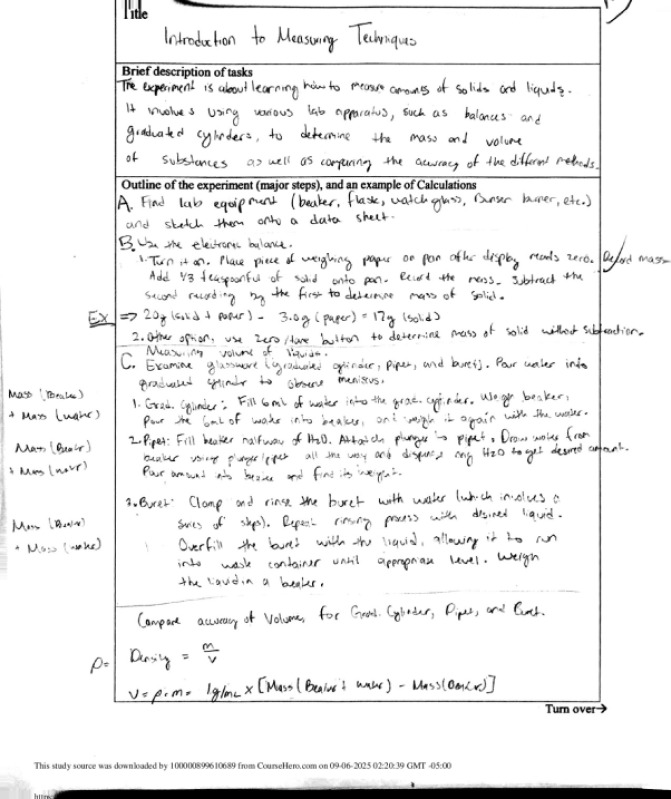 Title
Introduction to Measuring Techniques
Brief description of tasks
The experiment is about learning how to measure amounts of solids and liquids.
It involves using various lab apparatus, such as balances and
graduated cylinders, to determine the mass and volume
of substances as well as comparing the accuracy of the different methods.
Outline of the experiment (major steps), and an example of Calculations
A. Find lab equipment (beaker, flask, watch glass, Bunsen burner, etc.)
and sketch them onto a data sheet.
B. Use the electronic balance.
1. Turn it on. Place piece of weighing paper on pan after display reads zero. Record mass
Add 1/3 teaspoonful of solid onto pan. Record the mass. Subtract the
second recording by the first to determine mass of solid.
Ex => 20g (solid + paper) - 3.0g (paper) = 17g (solid)
2. Other option, use zero/tare button to determine mass of solid without subtraction.
Measuring volume of liquids.
C. Examine glassware (graduated cylinder, pipet, and buret). Pour water into
graduated cylinder to observe meniscus.
Mass (Beaker)
+ Mass (water)
1. Grad. Cylinder: Fill 6mL of water into the grad. cylinder. Weigh beaker,
Pour the 6mL of water into beaker, and weigh it again with the water.
Mass (Beaker)
+ Mass (water)
2. Pipet: Fill beaker halfway of H2O. Attatch plunger to pipet. Draw water from
beaker using plunger/pipet all the way and dispense any H2O to get desired amount.
Pour amount into beaker and find its weight.
Mass (Beaker)
+ Mass (water)
3. Buret: Clamp and rinse the buret with water (which involves a
series of steps). Repeat rinsing process with desired liquid.
Overfill the buret with the liquid, allowing it to run
into waste container until appropriate level. Weigh
the liquid in a beaker.
Compare accuracy of Volumes for Grad. Cylinder, Pipet, and Buret.
ρ= Density = m/v
V= ρ·m= 1g/mL x [Mass(Beaker + water) - Mass(
Turn over→
This study source was downloaded by 100000899610689 from CourseHero.com on 09-06-2025 02:20:39 GMT -05:00
https